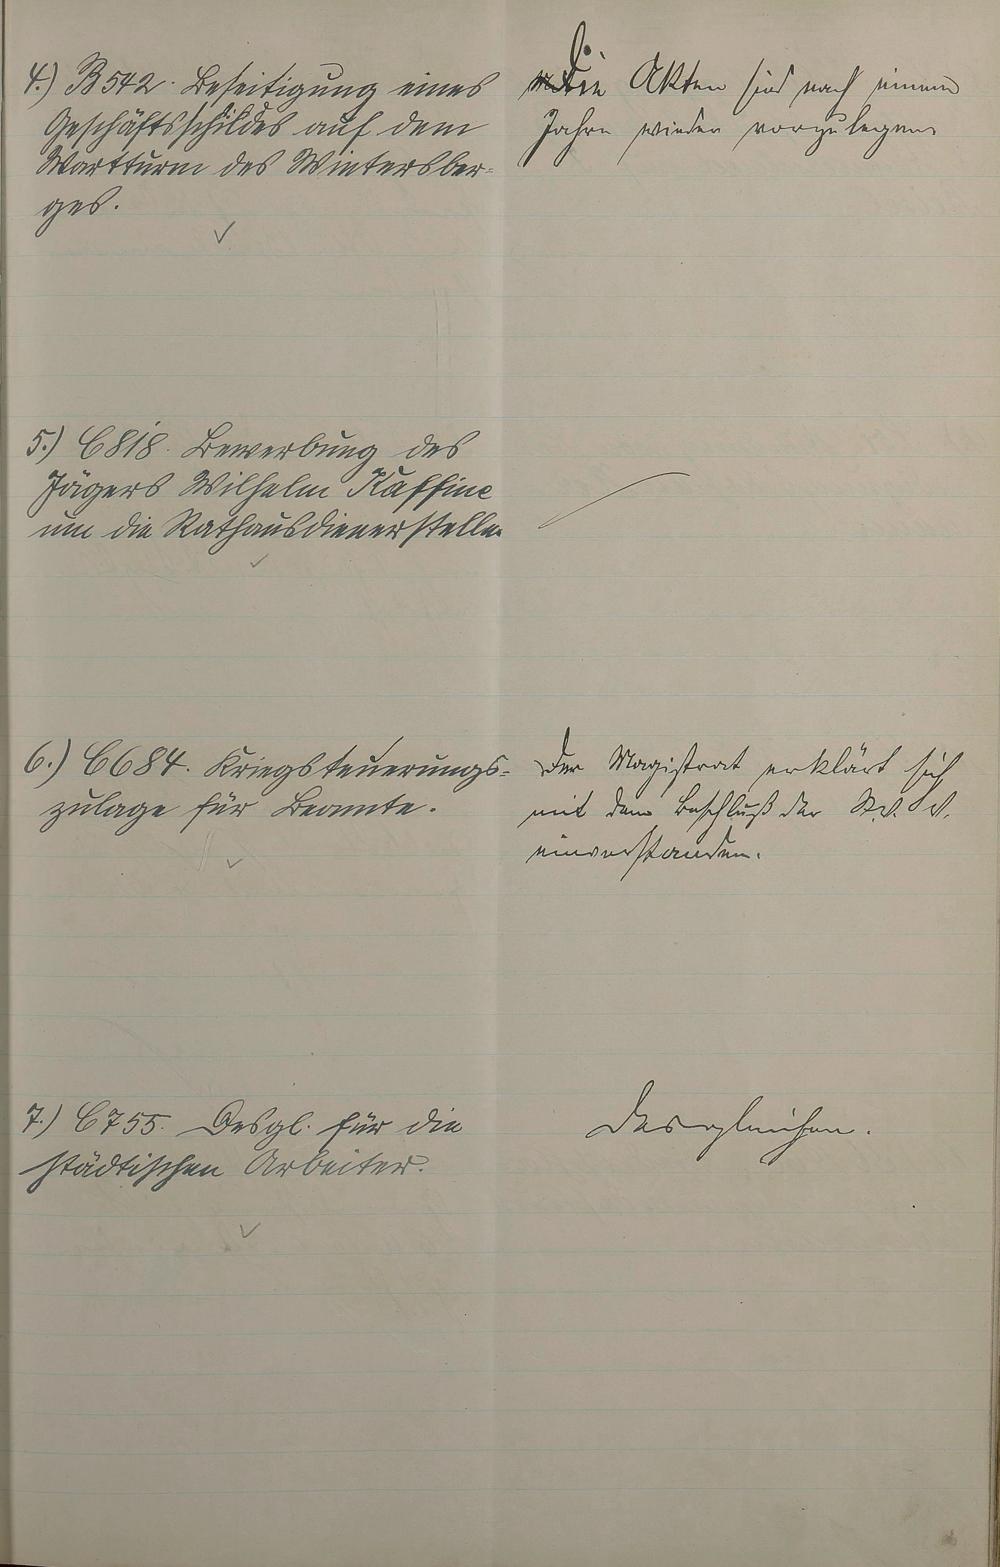 4.) B 542. Beseitigung eines
Geschäftsschildes auf dem
Wartturm des Wintersber-
ges.
Die Akten sind nach einem
Jahre wieder vorzulegen.
5.) C 818. Bewerbung des
Jägers Wilhelm Kaffine
um die Rathausdienerstelle.
6.) C 684. Kriegsteuerungs-
zulage für Beamte.
Der Magistrat erklärt sich
mit dem Beschluß der St.v.V.
einverstanden.
7.) C 755. Desgl. für die
städtischen Arbeiter.
Desgleichen.